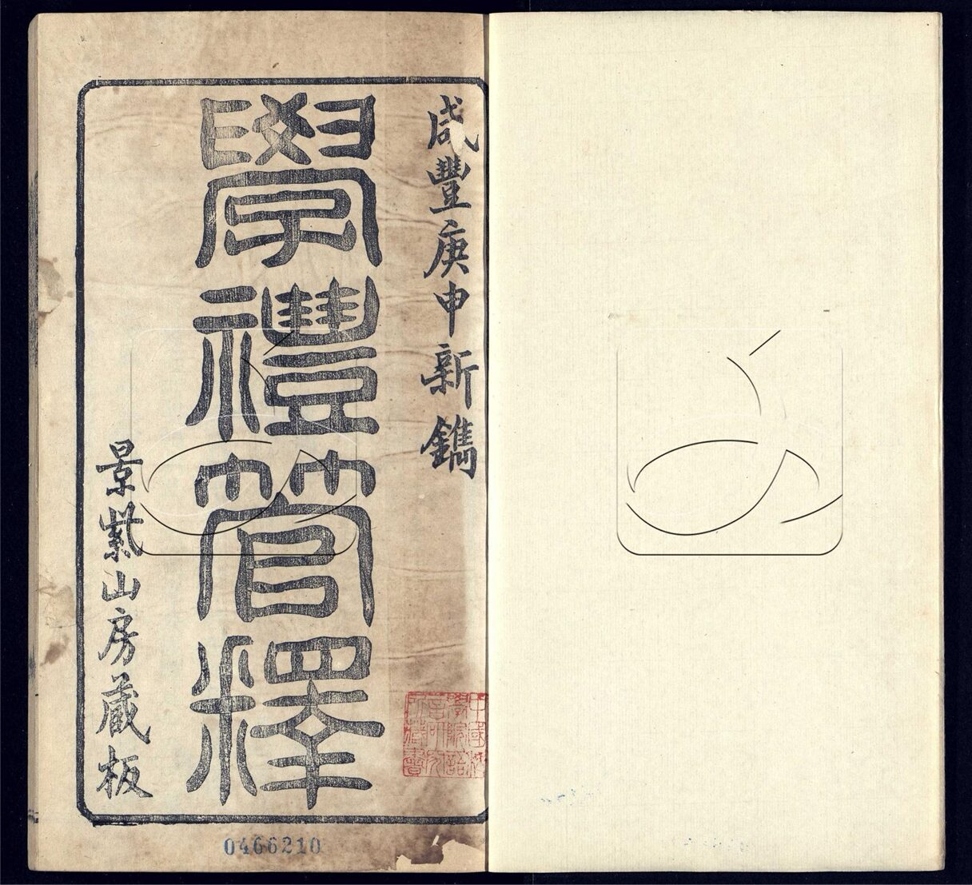 咸豐庚申新鐫
學禮管釋
景紫山房藏板
0466210